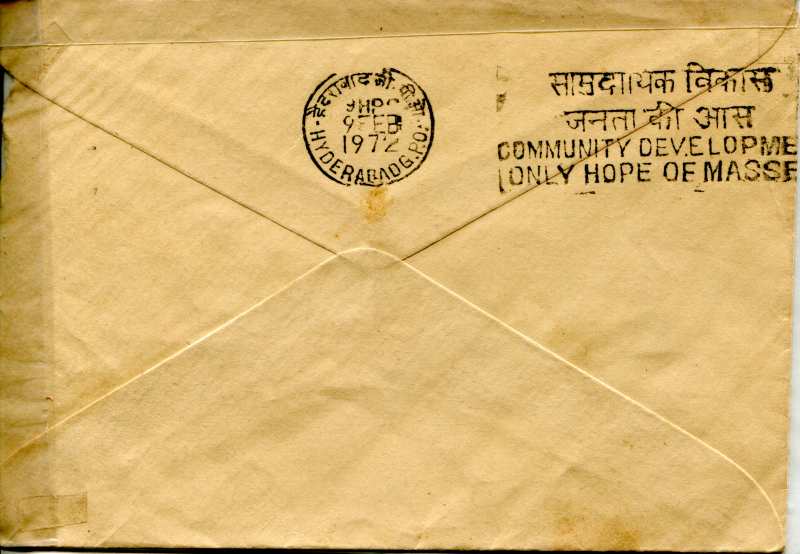 हैदराबाद जी. पी. ओ.
9 FEB
1972
HYDERABAD G.P.O.
सामुदायिक विकास
जनता की आस
COMMUNITY DEVELOPME
ONLY HOPE OF MASSE